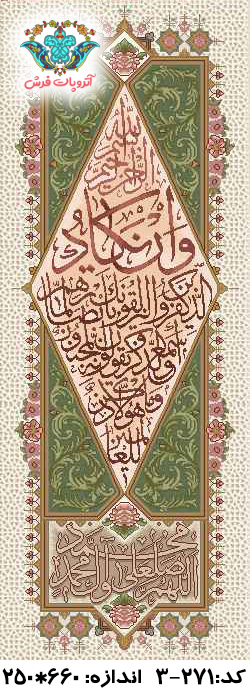 آتروپات فرش
بسم الله
الرحمن الرحیم
وان یکاد
الذین کفروا لیزلقونک بابصارهم
لما سمعوا الذکر و یقولون انه لمجنون
و ما هو الا ذکر
للعالمین
اللهم صل علی محمد و آل محمد
کد:۲۷۱-۳ اندازه: ۶۶۰*۲۵۰